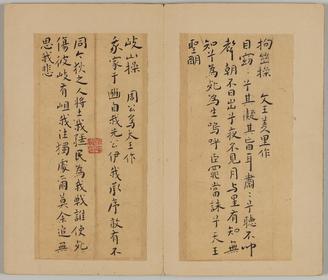 拘幽操 文王羑里作
目窈〻兮其凝其盲耳肅〻兮聽不聞
聲朝不日出兮夜不見月与星有知無
知兮為死為生嗚呼臣罪當誅兮天王
聖明
岐山操 周公為太王作
我家于豳自我先公伊我承序敢有不
同今狄之人將土我疆民為我戰誰使死
傷彼岐有岨我往獨處爾莫余追無
思我悲